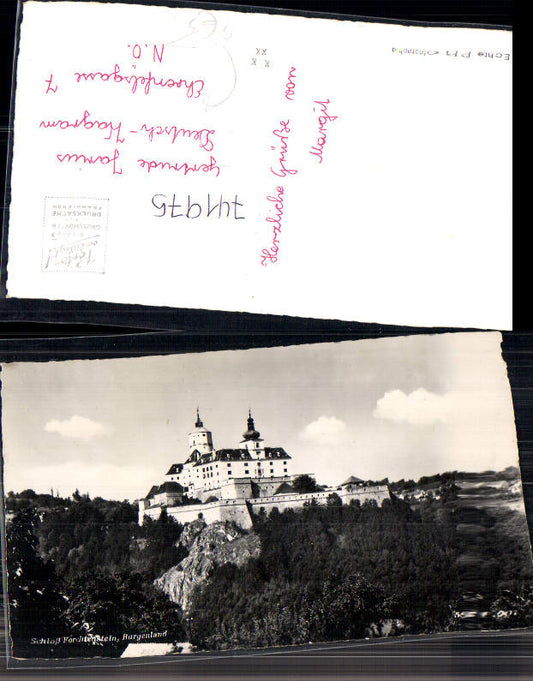 Echte Photographie
Herzliche Grüße von
Margit
Gertrude Janius
Deutsch-Wagram
N.Ö.
741975
DRUCKSACHE
Schloß Forchtenstein, Burgenland